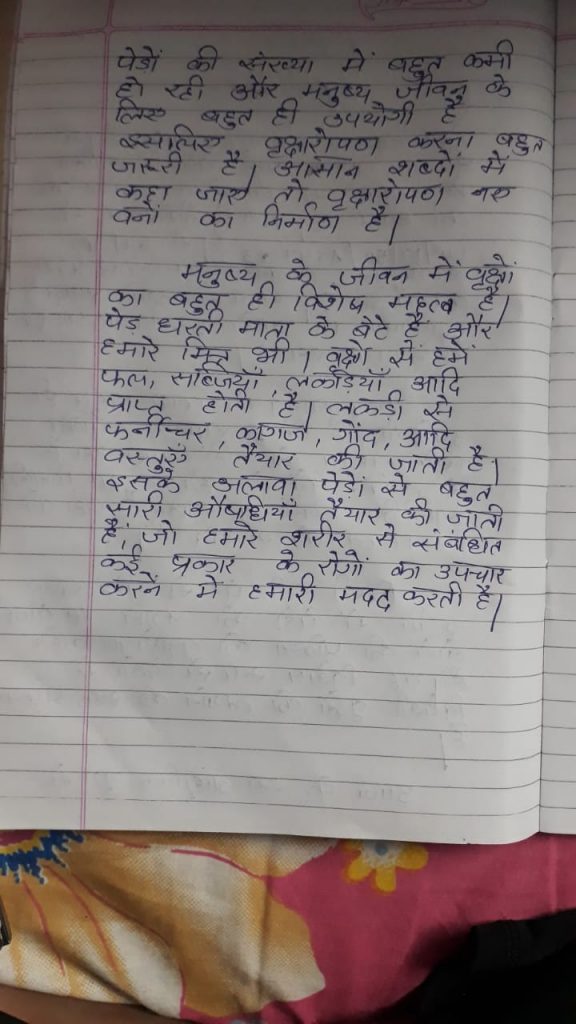 पेडों की संख्या में बहुत कमी
हो रही और मनुष्य जीवन के
लिए बहुत ही उपयोगी है
इसलिए वृक्षारोपण करना बहुत
जरूरी है। आसान शब्दों में
कहा जाए तो वृक्षारोपण नए
वनों का निर्माण है।
मनुष्य के जीवन में वृक्षों
का बहुत ही विशेष महत्व है।
पेड़ धरती माता के बेटे हैं और
हमारे मित्र भी। वृक्षों से हमें
फल, सब्जियाँ, लकड़ियाँ आदि
प्राप्त होती है। लकड़ी से
फर्नीचर, कागज, गोंद, आदि
वस्तुएँ तैयार की जाती है।
इसके अलावा पेडों से बहुत
सारी औषधियाँ तैयार की जाती
हैं, जो हमारे शरीर से संबंधित
कई प्रकार के रोगों का उपचार
करनें में हमारी मदद करती हैं।